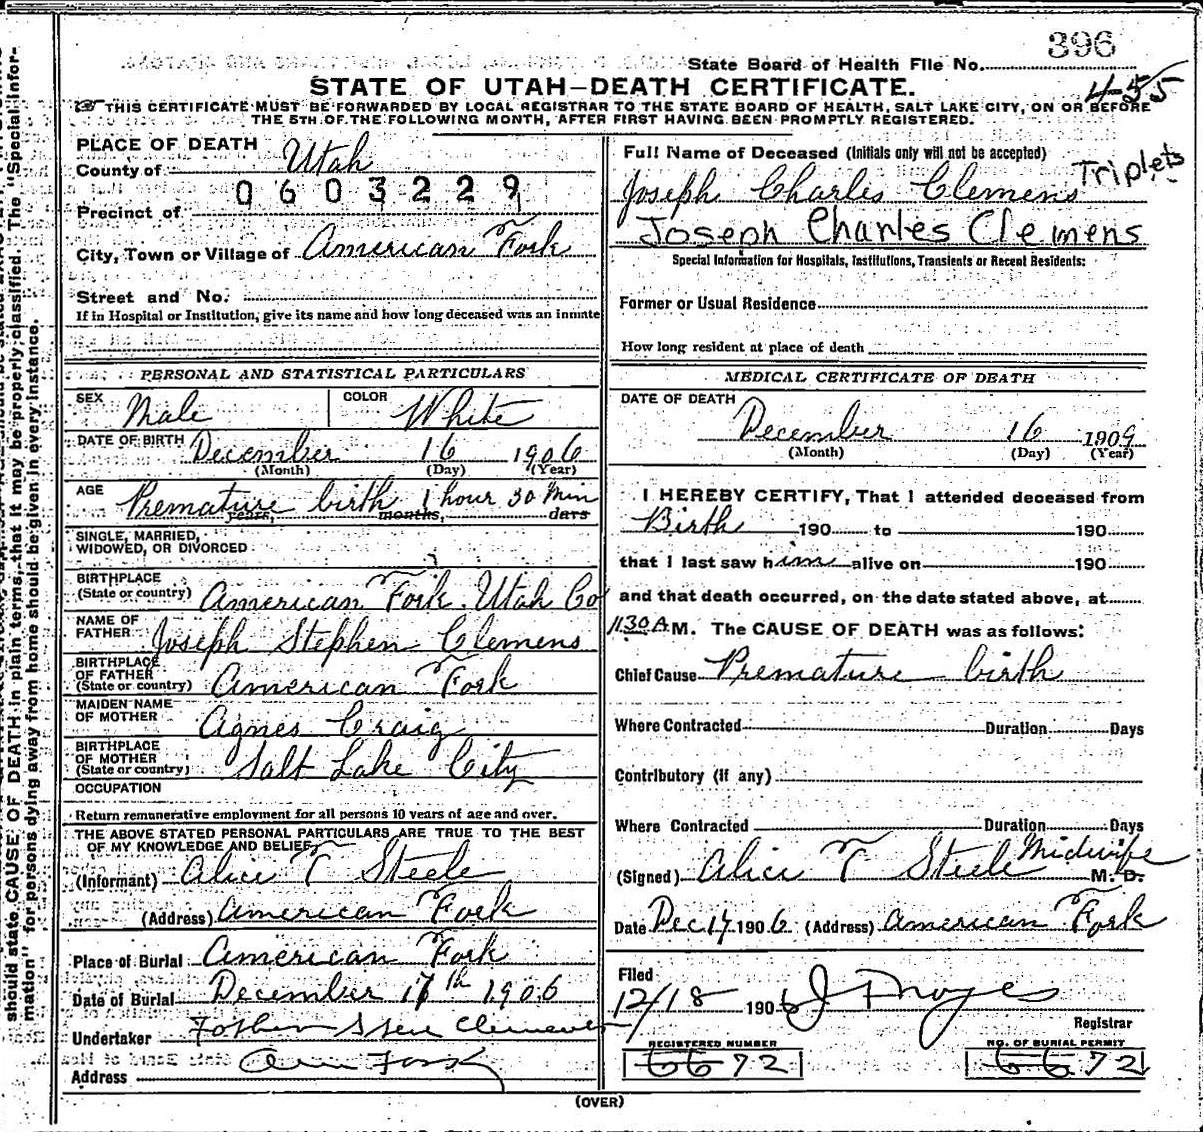 396
State Board of Health File No.
455
STATE OF UTAH—DEATH CERTIFICATE.
THIS CERTIFICATE MUST BE FORWARDED BY LOCAL REGISTRAR TO THE STATE BOARD OF HEALTH, SALT LAKE CITY, ON OR BEFORE
THE 5TH OF THE FOLLOWING MONTH, AFTER FIRST HAVING BEEN PROMPTLY REGISTERED.
PLACE OF DEATH
County of Utah
0603229
Precinct of
City, Town or Village of American Fork
Street and No.
If in Hospital or Institution, give its name and how long deceased was an inmate
Full Name of Deceased (Initials only will not be accepted)
Triplets
Joseph Charles Clemens
Joseph Charles Clemens
Special Information for Hospitals, Institutions, Transients or Recent Residents:
Former or Usual Residence
How long resident at place of death
PERSONAL AND STATISTICAL PARTICULARS
SEX Male COLOR White
DATE OF BIRTH December 16 1906
(Month) (Day) (Year)
AGE Premature birth 1 hour 30 Min
years, months, days
SINGLE, MARRIED,
WIDOWED, OR DIVORCED
BIRTHPLACE
(State or country) American Fork. Utah Co
NAME OF
FATHER Joseph Stephen Clemens
BIRTHPLACE
OF FATHER
(State or country) American Fork
MAIDEN NAME
OF MOTHER Agnes Craig
BIRTHPLACE
OF MOTHER
(State or country) Salt Lake City
OCCUPATION
Return remunerative employment for all persons 10 years of age and over.
THE ABOVE STATED PERSONAL PARTICULARS ARE TRUE TO THE BEST
OF MY KNOWLEDGE AND BELIEF
(Informant) Alice T Steele
(Address) American Fork
Place of Burial American Fork
Date of Burial December 17th 1906
Undertaker Father
Address Am Fork
MEDICAL CERTIFICATE OF DEATH
DATE OF DEATH
December 16 1909
(Month) (Day) (Year)
I HEREBY CERTIFY, That I attended deceased from
Birth 190 to 190
that I last saw him alive on 190
and that death occurred, on the date stated above, at
11.30 A M. The CAUSE OF DEATH was as follows:
Chief Cause Premature birth
Where Contracted Duration Days
Contributory (if any)
Where Contracted Duration Days
Midwife
(Signed) Alice T Steele M. D.
Date Dec 17 1906 (Address) American Fork
Filed
12/18 1906 J F Noyes
Registrar
REGISTERED NUMBER NO. OF BURIAL PERMIT
6672 6672
(OVER)
should state CAUSE OF DEATH in plain terms, that it may be properly classified. The "Special Infor-
mation" for persons dying away from home should be given in every instance.